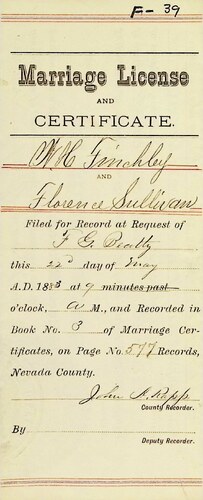 F-39
Marriage License
AND
CERTIFICATE.
W H Finchley
AND
Florence Sullivan
Filed for Record at Request of
F G Beatty
this 22d day of May
A.D. 1883 at 9 minutes past
o'clock, A M., and Recorded in
Book No. 3 of Marriage Cer-
tificates, on Page No. 577 Records,
Nevada County.
John A. Rapp
County Recorder.
By
Deputy Recorder.